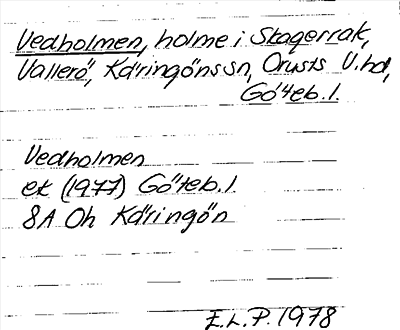 Vedholmen, holme i Skagerrak,
Vallerö, Käringönssn, Orusts V.hd,
Göteb.l.
Vedholmen
ek (1977) Göteb.l
8A Oh Käringön
E.L.P. 1978